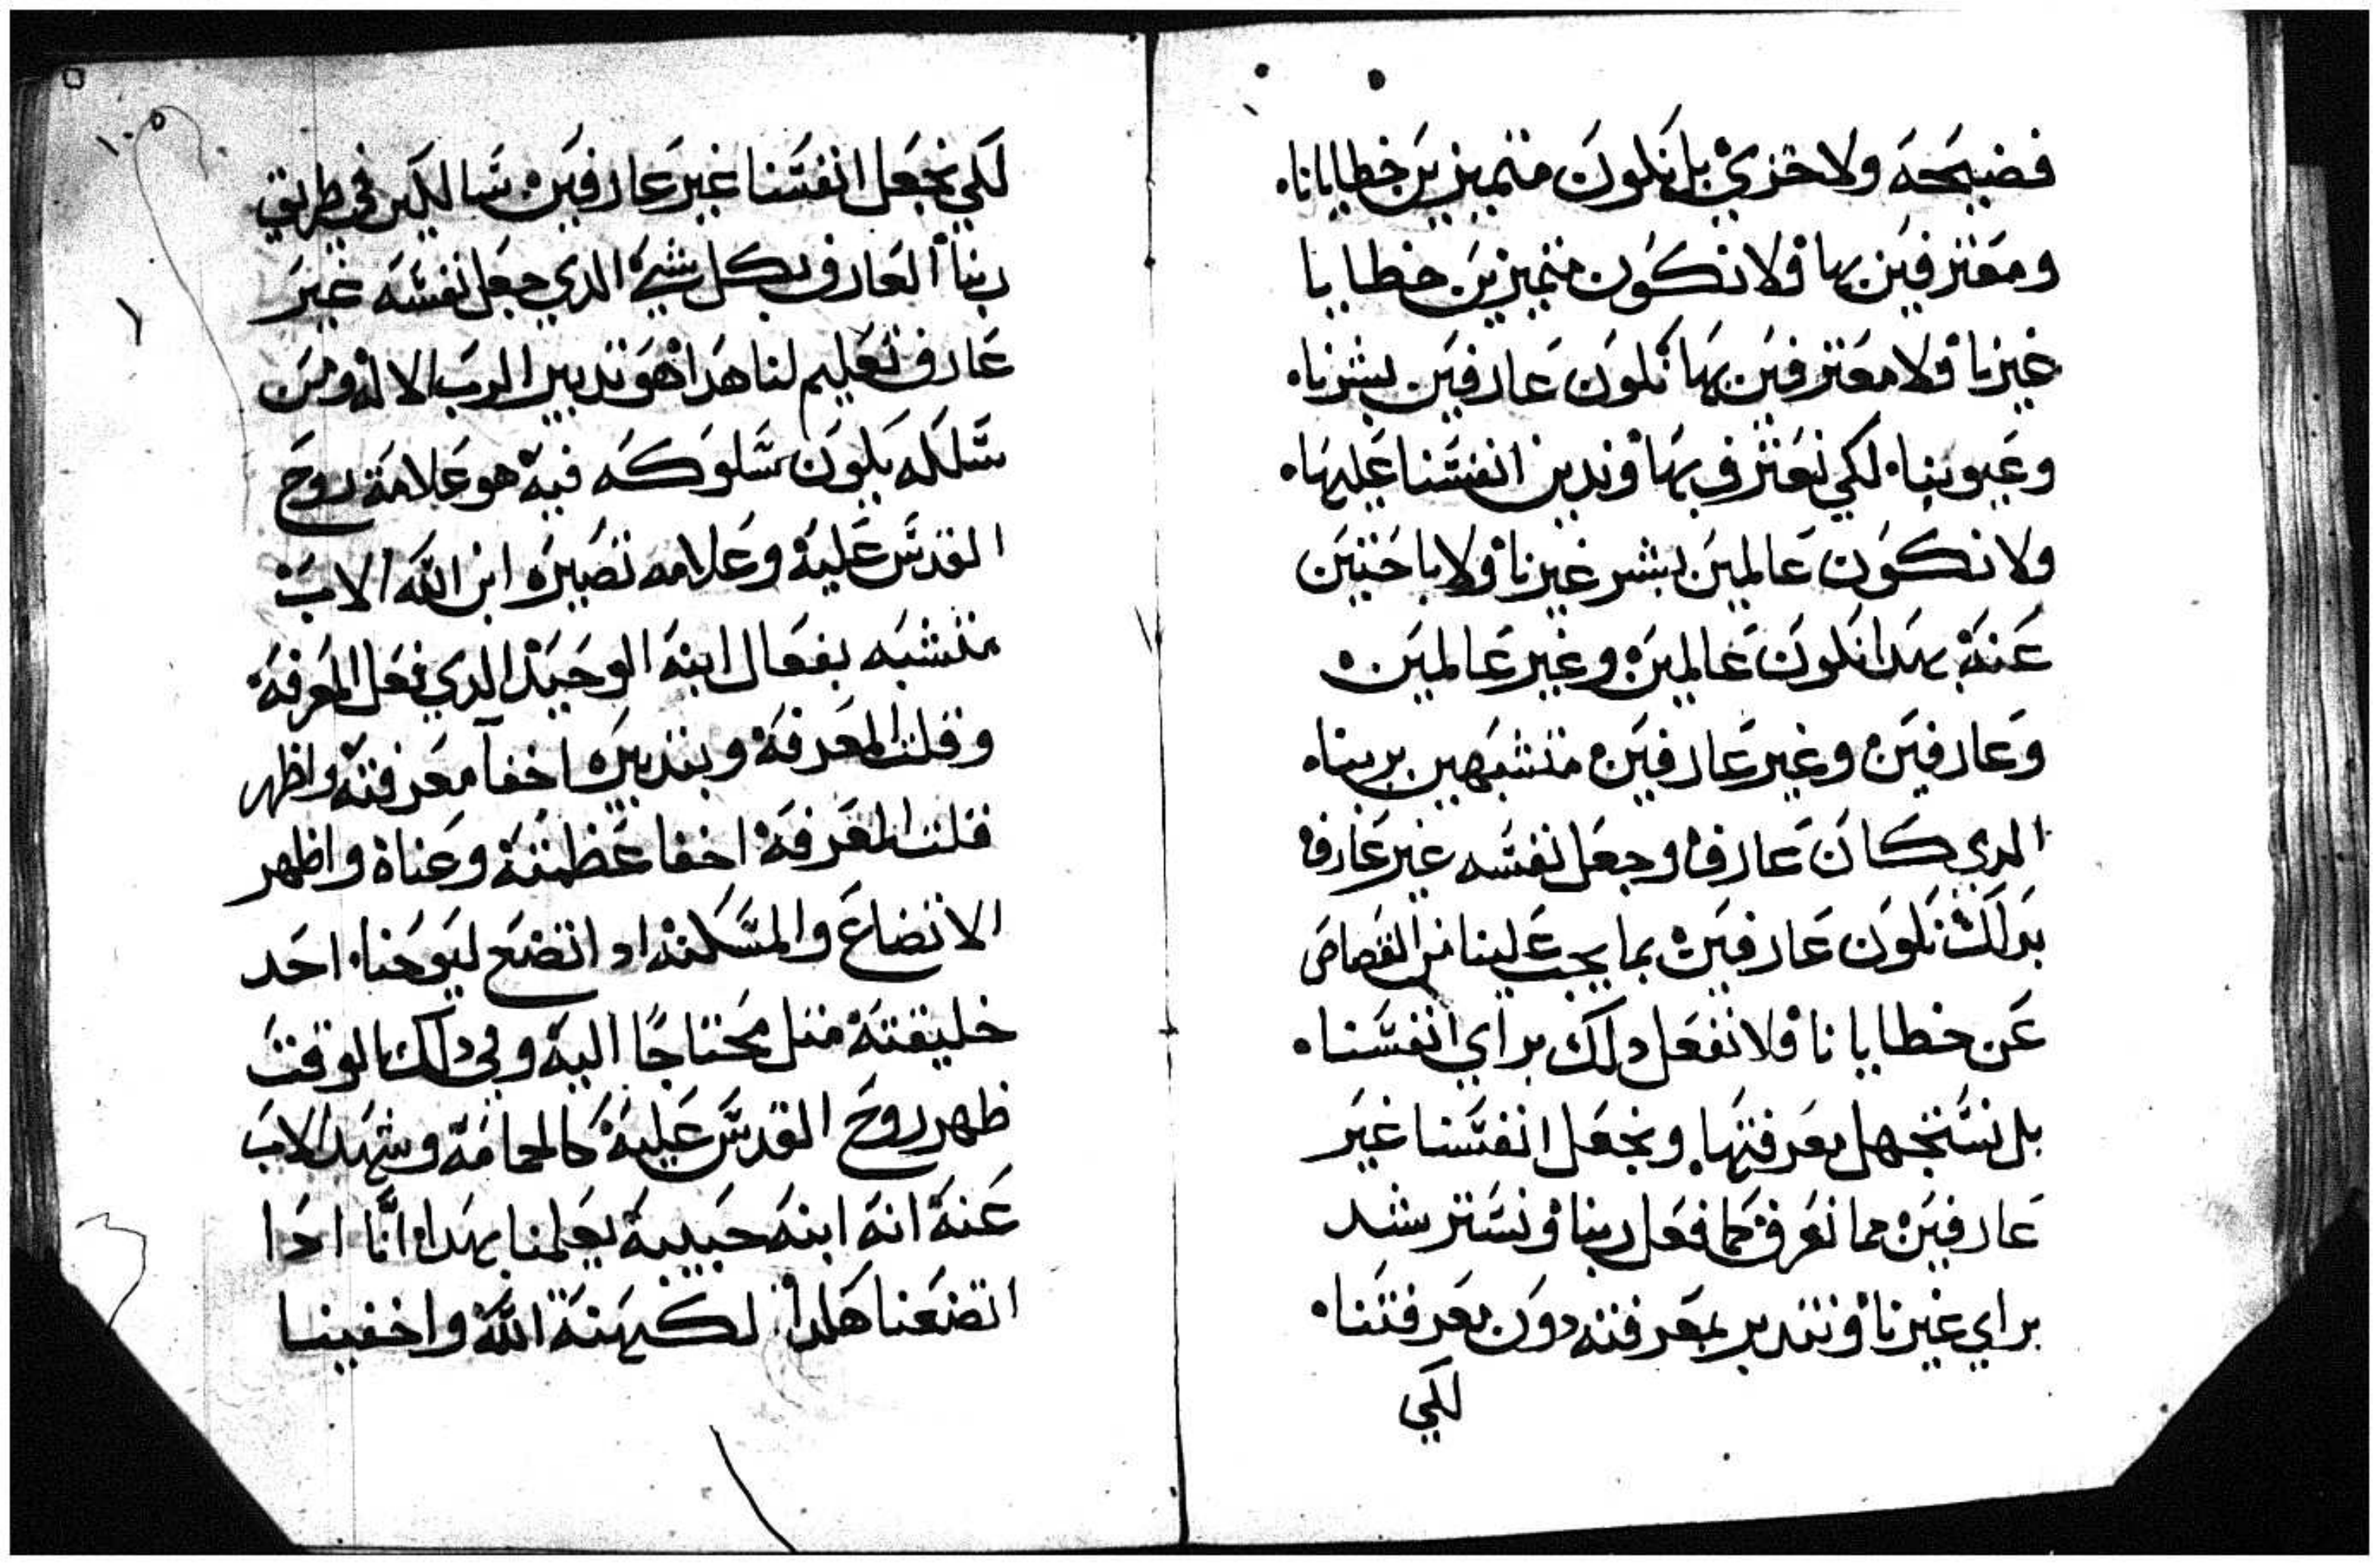 فضيحه ولا خزي بل نكون متميزين خطايانا.
ومعترفين بها ولا نكون متميزين خطايا
غيرنا ولا معترفين بها نكون عارفين بشرنا.
وعيوبنا. لكي نعترف بها وندين انفسنا عليها.
ولا نكون عالمين بشر غيرنا ولا باحثين
عنه بهدا نكون عالمين وغير عالمين.
وعارفين وغير عارفين متشبهين بربنا.
الدي كان عارف وجعل نفسه غير عارف
بدلك نكون عارفين بما يجب علينا من القصاص
عن خطايانا فلا نفعل دلك براي انفسنا.
بل نستجهل معرفتها. ونجعل انفسنا غير
عارفين مما نعرف كما فعل ربنا ونسترشد
براي غيرنا ونتدبر بمعرفته دون معرفتنا.
لكي
١٠٥
لكي نجعل انفسنا غير عارفين سالكين في طريق
ربنا العارف بكل شي الدي جعل نفسه غير
عارف تعليم لنا هدا هو تدبير الرب الاله ومن
سلكه يكون سلوكه فيه هو علامة روح
القدس عليه وعلامه تصيره ابن الله الاب
متشبه بفعال ابنه الوحيد الدي فعل المعرفه
وقلت المعرفه وبتدبيره اخفا معرفته واظهر
قلت المعرفه اخفا عظمته وغناه واظهر
الاتضاع والمسكنه اد اتضع ليوحنا. احد
خليقته متل محتاجا اليه وفي دلك الوقت
ظهر روح القدس عليه كالحمامه وشهد الاب
عنه انه ابنه حبيبه يعلمنا بهدا اننا ادا
اتضعنا هكدا. لكهنة الله واخفينا